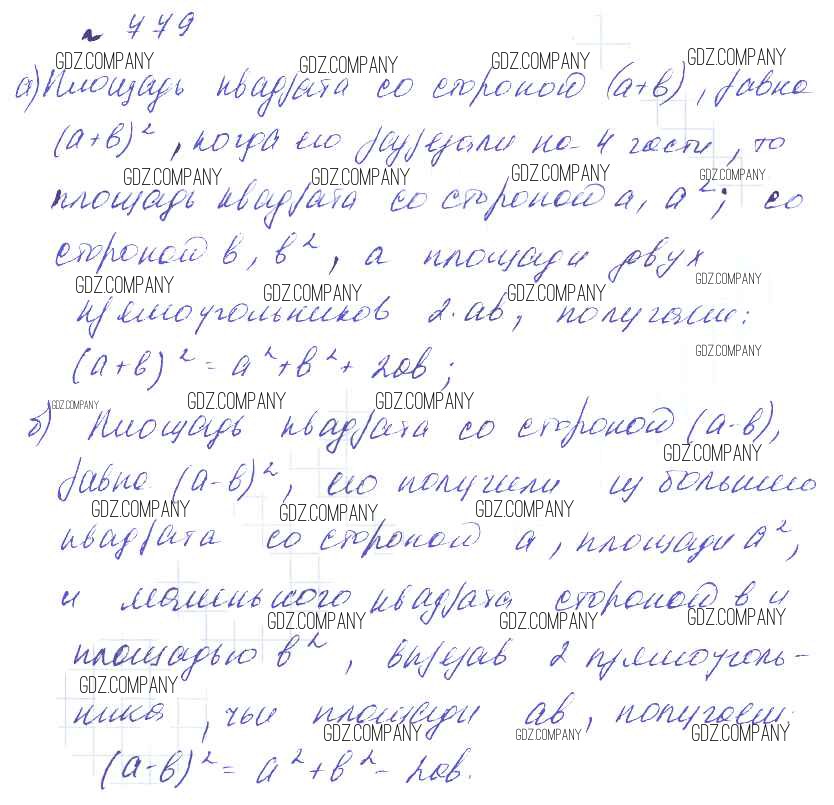 № 779
GDZ.COMPANY GDZ.COMPANY GDZ.COMPANY GDZ.COMPANY
а) Площадь квадрата со стороной (a+b), равна
(a+b)², когда его разрезали на 4 части, то
GDZ.COMPANY GDZ.COMPANY GDZ.COMPANY GDZ.COMPANY
площадь квадрата со стороной a, a²; со
стороной b, b², а площади двух
GDZ.COMPANY GDZ.COMPANY GDZ.COMPANY GDZ.COMPANY
прямоугольников 2·ab, получаем:
GDZ.COMPANY
(a+b)² = a²+b²+2ab;
GDZ.COMPANY GDZ.COMPANY GDZ.COMPANY
б) Площадь квадрата со стороной (a-b),
GDZ.COMPANY
равна (a-b)², его получили из большего
GDZ.COMPANY GDZ.COMPANY GDZ.COMPANY
квадрата со стороной a, площади a²,
и маленького квадрата стороной b и
GDZ.COMPANY GDZ.COMPANY GDZ.COMPANY
площадью b², вырезав 2 прямоуголь-
GDZ.COMPANY
ника, чьи площади ab, получаем:
GDZ.COMPANY GDZ.COMPANY GDZ.COMPANY
(a-b)² = a²+b²-2ab.